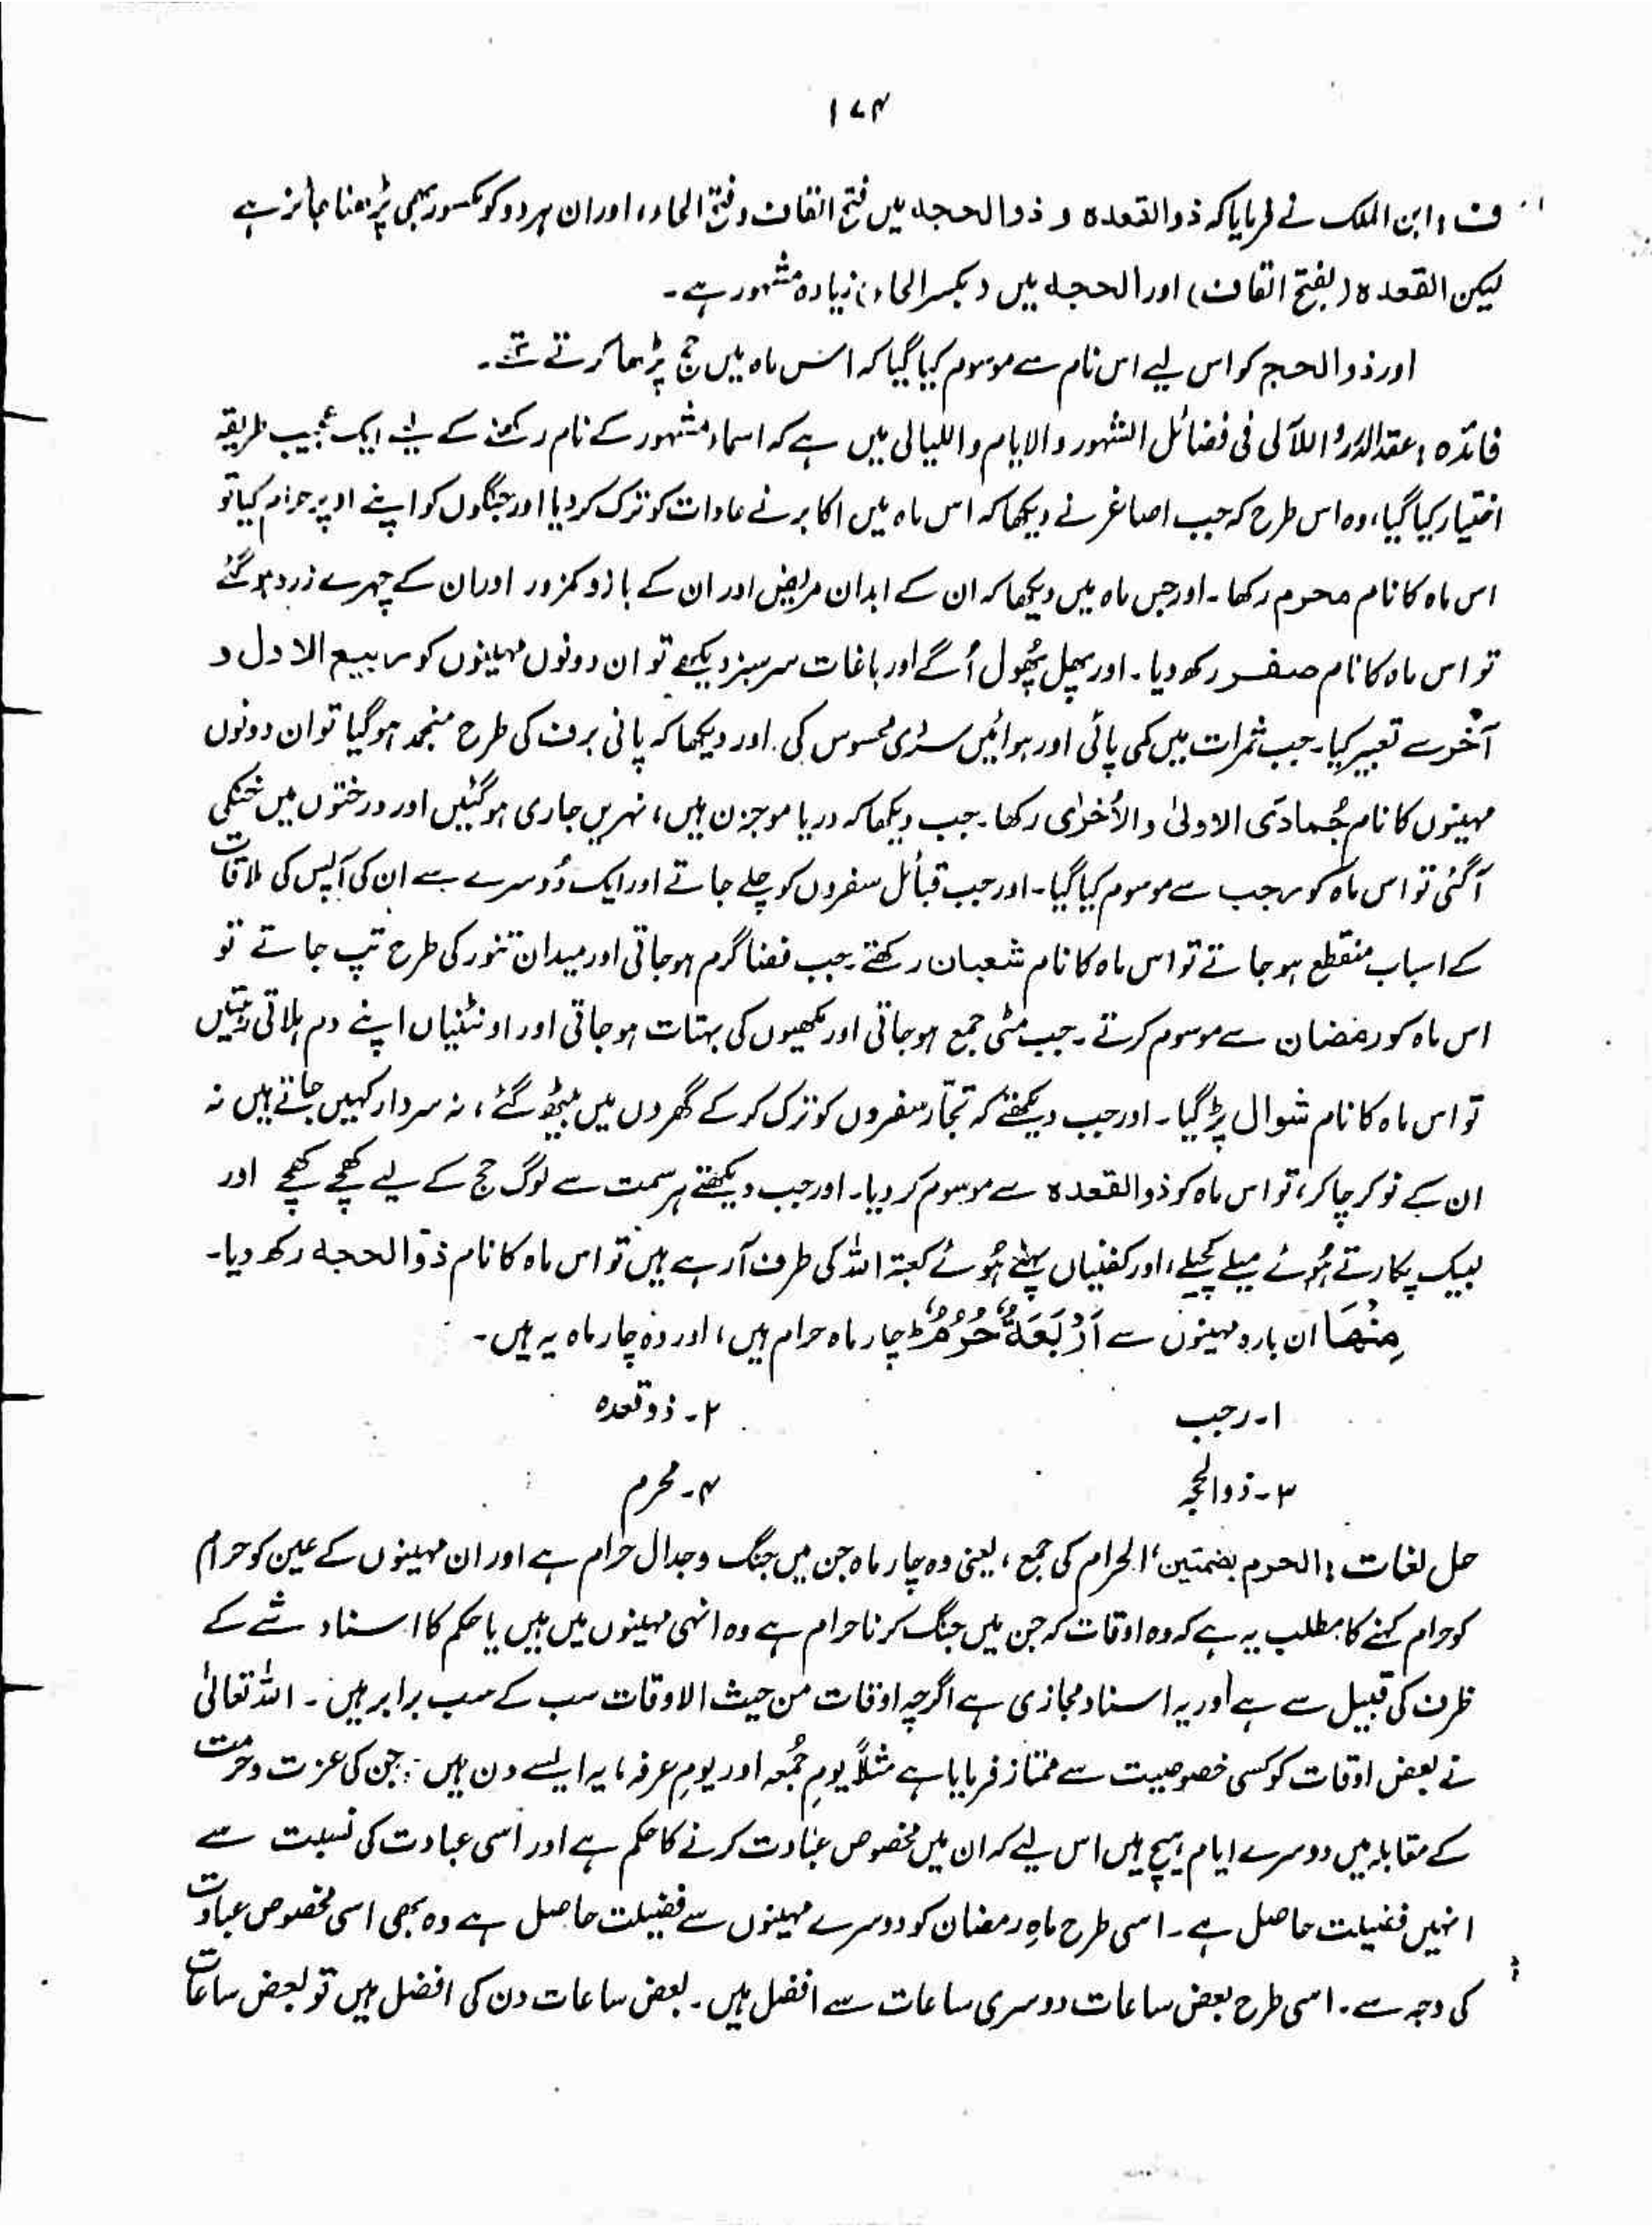 ۱۷۴
ف : ابن الملک نے فرمایا کہ ذوالقعدہ و ذوالحجہ میں فتح القاف و فتح الحاء، اور ان ہر دو کو مکسور بھی پڑھنا جائز ہے
لیکن القعدہ (بفتح القاف) اور الحجہ میں (بکسر الحاء) زیادہ مشہور ہے۔
اور ذوالحج کو اس لیے اس نام سے موسوم کیا گیا کہ اس ماہ میں حج پڑھا کرتے تھے۔
فائدہ : عقد الدرر و اللآلی فی فضائل الشہور والایام واللیالی میں ہے کہ اسماء مشہور کے نام رکھنے کے لیے ایک عجیب طریقہ
اختیار کیا گیا، وہ اس طرح کہ جب اصاغر نے دیکھا کہ اس ماہ میں اکابر نے عادات کو ترک کر دیا اور جنگوں کو اپنے اوپر حرام کیا تو
اس ماہ کا نام محرم رکھا۔ اور جس ماہ میں دیکھا کہ ان کے ابدان مریض اور ان کے بازو کمزور اور ان کے چہرے زرد ہو گئے
تو اس ماہ کا نام صفر رکھ دیا۔ اور پھل پُھول اُگے اور باغات سرسبز دیکھے تو ان دونوں مہینوں کو ربیع الاول و
آخر سے تعبیر کیا۔ جب ثمرات میں کمی پائی اور ہوائیں سرد ی محسوس کی۔ اور دیکھا کہ پانی برف کی طرح منجمد ہو گیا تو ان دونوں
مہینوں کا نام جُمادَی الاولیٰ والاُخرٰی رکھا۔ جب دیکھا کہ دریا موجزن ہیں، نہریں جاری ہو گئیں اور درختوں میں خنکی
آگئی تو اس ماہ کو رجب سے موسوم کیا گیا۔ اور جب قبائل سفروں کو چلے جاتے اور ایک دُوسرے سے ان کی آپس کی ملاقات
کے اسباب منقطع ہو جاتے تو اس ماہ کا نام شعبان رکھتے۔ جب فضا گرم ہو جاتی اور میدان تنور کی طرح تپ جاتے تو
اس ماہ کو رمضان سے موسوم کرتے۔ جب مٹی جمع ہو جاتی اور مکھیوں کی بہتات ہو جاتی اور اونٹنیاں اپنے دم ہلاتی رہتیں
تو اس ماہ کا نام شوال پڑ گیا۔ اور جب دیکھتے کہ تجّار سفروں کو ترک کر کے گھروں میں بیٹھ گئے، نہ سردار کہیں جاتے ہیں نہ
ان کے نوکر چاکر، تو اس ماہ کو ذوالقعدہ سے موسوم کر دیا۔ اور جب دیکھتے ہر سمت سے لوگ حج کے لیے کھچے کھچے اور
لبیک پکارتے ہُوئے میلے کچیلے، اور کفنیاں پہنے ہُوئے کعبۃ اللہ کی طرف آرہے ہیں تو اس ماہ کا نام ذوالحجہ رکھ دیا۔
مِنْهَا ان بارہ مہینوں سے اَرْبَعَةٌ حُرُمٌ ؕ چار ماہ حرام ہیں، اور وہ چار ماہ یہ ہیں۔
۱۔ رجب ۲۔ ذوقعدہ
۳۔ ذوالحجہ ۴۔ محرم
حل لغات : الحرم بضمتین، الحرام کی جمع، یعنی وہ چار ماہ جن میں جنگ و جدال حرام ہے اور ان مہینوں کے عین کو حرام
کو حرام کہنے کا مطلب یہ ہے کہ وہ اوقات کہ جن میں جنگ کرنا حرام ہے وہ انہی مہینوں میں ہیں یا حکم کا اسناد شے کے
ظرف کی قبیل سے ہے اور یہ اسناد مجازی ہے اگرچہ اوقات من حیث الاوقات سب کے سب برابر ہیں۔ اللہ تعالیٰ
نے بعض اوقات کو کسی خصوصیت سے ممتاز فرمایا ہے مثلاً یومِ جُمعہ اور یومِ عرفہ، یہ ایسے دن ہیں جن کی عزت و حرمت
کے مقابلہ میں دوسرے ایام ہیچ ہیں اس لیے کہ ان میں مخصوص عبادت کرنے کا حکم ہے اور اسی عبادت کی نسبت سے
انہیں فضیلت حاصل ہے۔ اسی طرح ماہِ رمضان کو دوسرے مہینوں سے فضیلت حاصل ہے وہ بھی اسی مخصوص عبادت
کی وجہ سے۔ اسی طرح بعض ساعات دوسری ساعات سے افضل ہیں۔ بعض ساعات دن کی افضل ہیں تو بعض ساعات